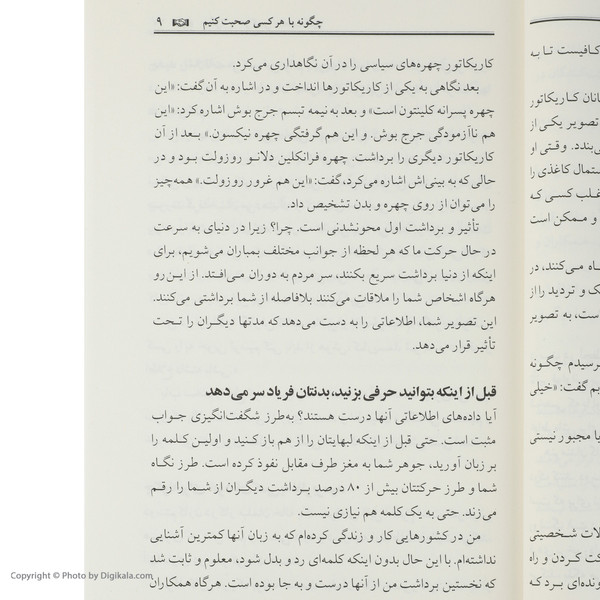 چگونه با هر کسی صحبت کنیم ۹
کاریکاتور چهره‌های سیاسی را در آن نگاهداری می‌کرد.
بعد نگاهی به یکی از کاریکاتورها انداخت و در اشاره به آن گفت: «این
چهره پسرانه کلینتون است» و بعد به نیمه تبسم جرج بوش اشاره کرد: «این
هم ناآزمودگی جرج بوش. و این هم گرفتگی چهره نیکسون.» بعد از آن
کاریکاتور دیگری را برداشت. چهره فرانکلین دلانو روزولت بود و در
حالی که به بینی‌اش اشاره می‌کرد، گفت: «این هم غرور روزولت.» همه‌چیز
را می‌توان از روی چهره و بدن تشخیص داد.
تأثیر و برداشت اول محونشدنی است. چرا؟ زیرا در دنیای به سرعت
در حال حرکت ما که هر لحظه از جوانب مختلف بمباران می‌شویم، برای
اینکه از دنیا برداشت سریع بکنند، سر مردم به دوران می‌افتد. از این‌رو
هرگاه اشخاص شما را ملاقات می‌کنند بلافاصله از شما برداشتی می‌کنند.
این تصویر شما، اطلاعاتی را به دست می‌دهد که مدتها دیگران را تحت
تأثیر قرار می‌دهد.
قبل از اینکه بتوانید حرفی بزنید، بدنتان فریاد سر می‌دهد
آیا داده‌های اطلاعاتی آنها درست هستند؟ به‌طرز شگفت‌انگیزی جواب
مثبت است. حتی قبل از اینکه لبهایتان را از هم باز کنید و اولین کلمه را
بر زبان آورید، جوهر شما به مغز طرف مقابل نفوذ کرده است. طرز نگاه
شما و طرز حرکتتان بیش از ۸۰ درصد برداشت دیگران از شما را رقم
می‌زند. حتی به یک کلمه هم نیازی نیست.
من در کشورهایی کار و زندگی کرده‌ام که به زبان آنها کمترین آشنایی
نداشته‌ام. با این حال بدون اینکه کلمه‌ای رد و بدل شود، معلوم و ثابت شد
که نخستین برداشت من از آنها درست و به جا بوده است. هرگاه همکاران
کافیست تا به
انان کاریکاتور
تصویر یکی از
ی‌بندد. وقتی او
ستمال کاغذی را
غلب کسی که
و ممکن است
اه می‌کنند، در
ک و تردید را از
ست، به تصویر
رسیدم چگونه
بم گفت: «خیلی
یا مجبور نیستی
لات شخصیتی
کت کردن و راه
ونده‌ای برد که
Copyright © Photo by Digikala.com